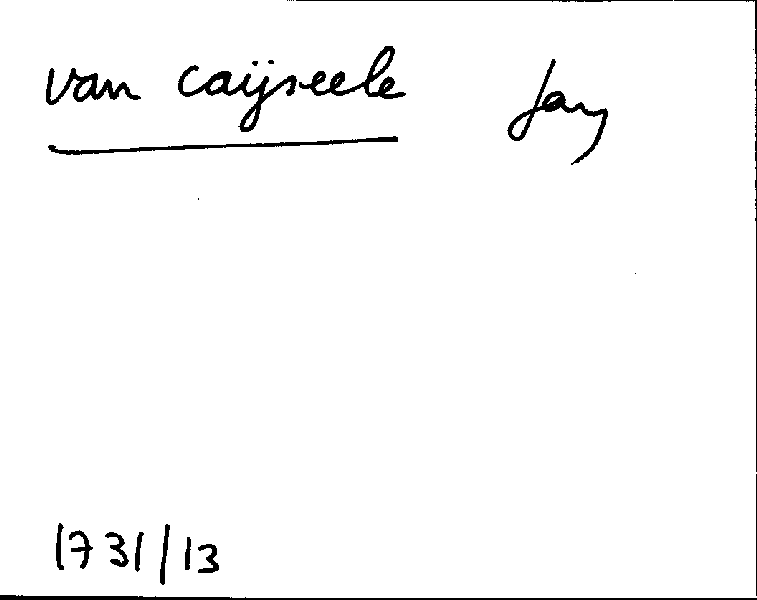 van caijseele Jan
1731/13